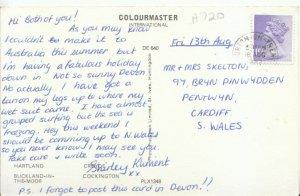 COLOURMASTER
INTERNATIONAL
A720
Hi Both of you!
As you may know
I couldn't make it to
Australia this summer but
I'm having a fabulous holiday
down in 'Not so sunny Devon'
No actually I have got a
tan on my legs up to where my
wet suit came. I have almost
grasped surfing but the sea is
freezing. Hey this weekend I
should be comming up to N. Wales
so you never know! I may see you.
Take care & write soon.
xxx
DE 640
Fri 13th Aug
MR + MRS SKELTON,
97, BRYN PINWYDDEN
PENTWYN,
CARDIFF
S. WALES
HARTLAND
CROYDE
BUCKLAND-IN-
THE-MOOR
COCKINGTON
PLX1348
P.S. I forgot to post this card in Devon!!